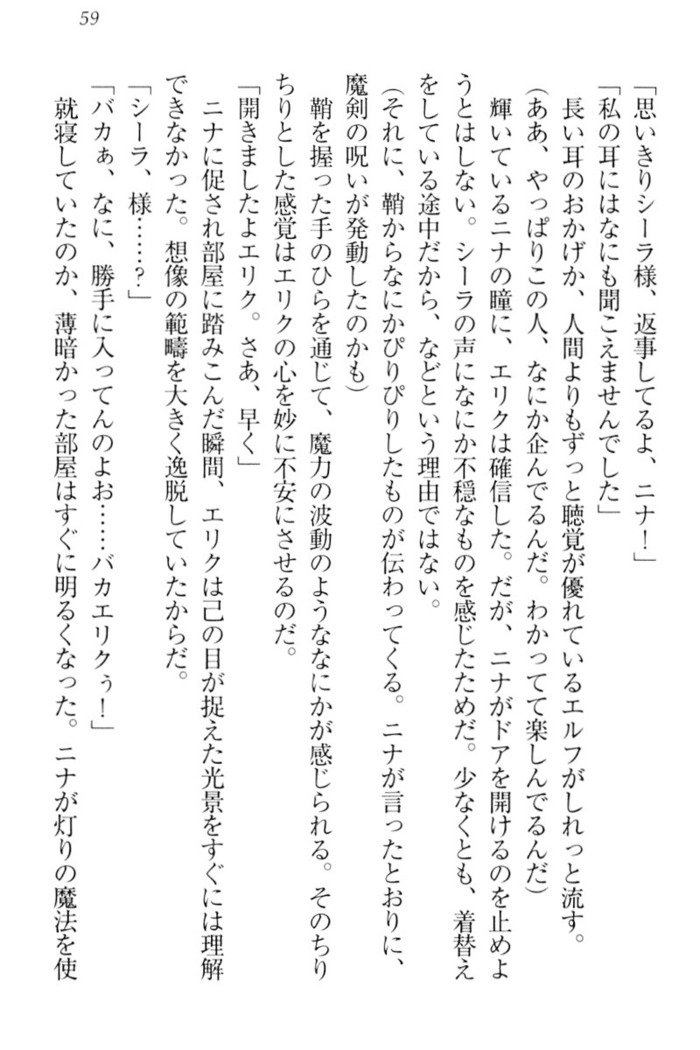 59
「思いきりシーラ様、返事してるよ、ニナ！」
「私の耳にはなにも聞こえませんでした」
　長い耳のおかげか、人間よりもずっと聴覚が優れているエルフがしれっと流す。
（ああ、やっぱりこの人、なにか企んでるんだ。わかってて楽しんでるんだ）
　輝いているニナの瞳に、エリクは確信した。だが、ニナがドアを開けるのを止めよ
うとはしない。シーラの声になにか不穏なものを感じたためだ。少なくとも、着替え
をしている途中だから、などという理由ではない。
（それに、鞘からなにかぴりぴりしたものが伝わってくる。ニナが言ったとおりに、
魔剣の呪いが発動したのかも）
　鞘を握った手のひらを通じて、魔力の波動のようななにかが感じられる。そのちり
ちりとした感覚はエリクの心を妙に不安にさせるのだ。
「開きましたよエリク。さあ、早く」
　ニナに促され部屋に踏みこんだ瞬間、エリクは己の目が捉えた光景をすぐには理解
できなかった。想像の範疇を大きく逸脱していたからだ。
「シーラ、様……？」
「バカぁ、なに、勝手に入ってんのよお……バカエリクぅ！」
　就寝していたのか、薄暗かった部屋はすぐに明るくなった。ニナが灯りの魔法を使